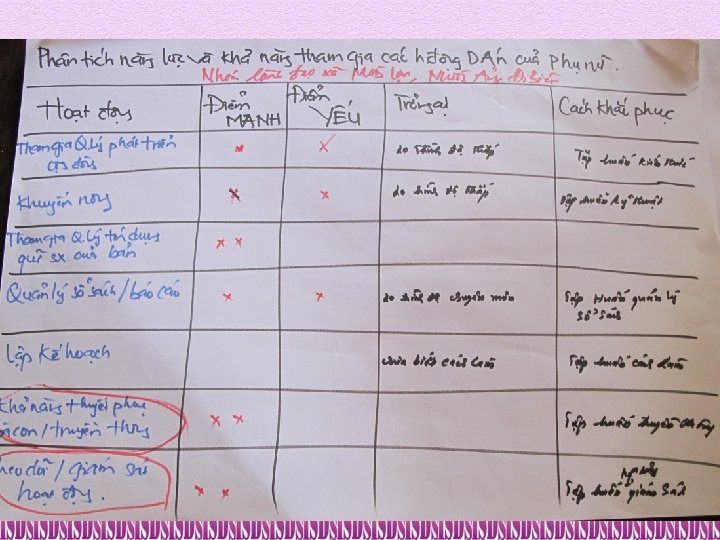 Phân tích năng lực và khả năng tham gia các h động DẬN của phụ nữ.
Nhóm lãnh đạo xã
Hoạt động
Điểm MẠNH
Điểm YẾU
Trở ngại
Cách khắc phục
Tham gia Q.Lý phát triển
cộng đồng
x
x
do trình độ thấp
Tập huấn kiến thức
Khuyến nông
x
x
do trình độ thấp
Tập huấn kỹ thuật
Tham gia Q.Lý tín dụng
quĩ sx của bản
x x
Quản lý sổ sách / báo cáo
x
x
do trình độ chuyên môn
Tập huấn quản lý
sổ sách
Lập kế hoạch
chưa biết cách làm
Tập huấn cách làm
Khả năng thuyết phục
bà con / truyền thông
x x
Tập huấn truyền thông
heo dõi / giám sát
hoạt động.
x x
Tập huấn giám sát